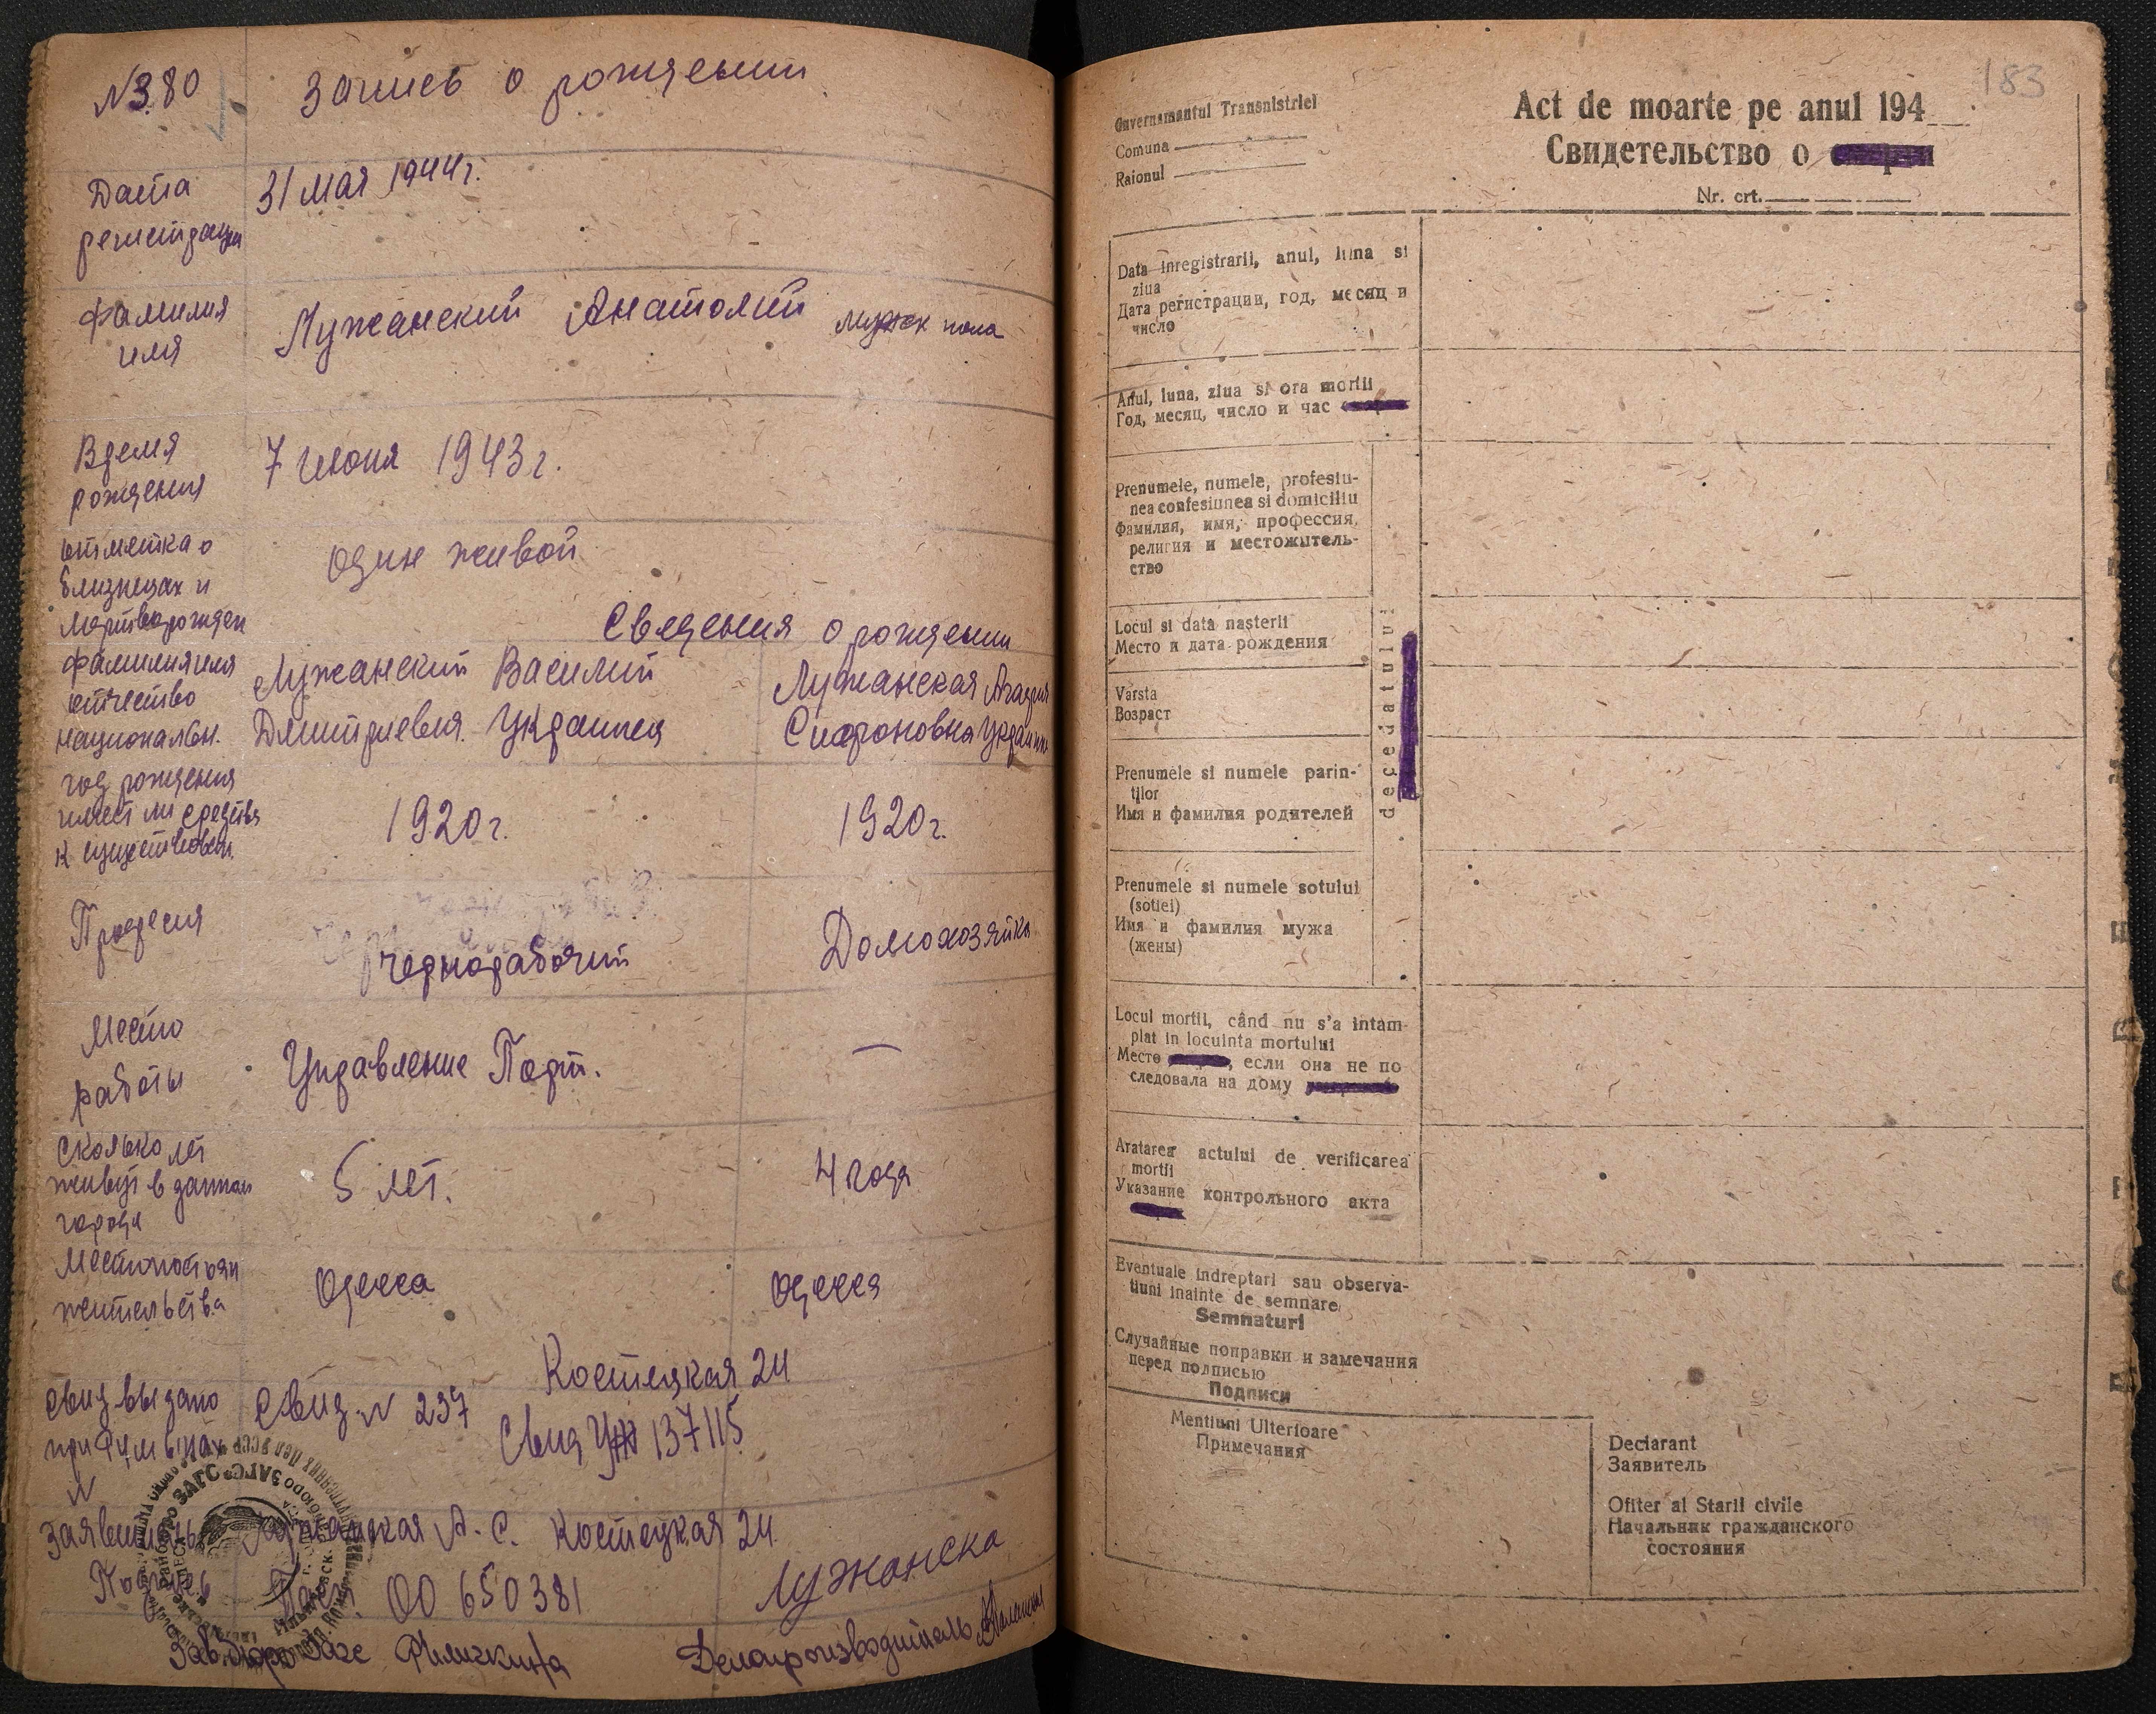 №380 Запись о рождении
Дата 31 мая 1944г.
регистрации
Фамилия Лужанский Анатолий мужск пола
имя
Время 7 июня 1943г.
рождения
отметка о один живой
близнецах и
мертворожден
Сведения о рождении
фамилия имя Лужанский Василий Лужанская
отчество
национальн. Дмитриевич Украинец Сафроновна Украин
год рождения
имеет ли средства 1920г. 1920г.
к существован.
Професия Чернорабочий Домохозяйка
Место Управление Порт. —
работы
Сколько лет 5 лет. 4 года
живут в данном
городе
Место постоян Одесса Одесса
жительства
Костецкая 24
Свид выдано Свид. № 237
Свид 137115
№
Заявитель Лужанская А. С. Костецкая 24
Подпись Пасп. 00 650381 Лужанска
Зав. бюро Загс Делопроизводитель
183
Guvernamantul Transnistriei
Comuna
Raionul
Act de moarte pe anul 194
Свидетельство о
Nr. crt.
Data inregistrarii, anul, luna si
ziua
Дата регистрации, год, месяц и
число
Anul, luna, ziua si ora mortii
Год, месяц, число и час
Prenumele, numele, profesiu-
nea confesiunea si domiciliu
Фамилия, имя, профессия,
религия и местожитель-
ство
Locul si data naşterii
Место и дата рождения
Varsta
Возраст
Prenumele si numele parin-
ţilor
Имя и фамилия родителей
decedatului
Prenumele si numele sotului
(sotiei)
Имя и фамилия мужа
(жены)
Locul mortii, când nu s'a intam-
plat in locuinta mortului
Место , если она не по
следовала на дому
Aratarea actului de verificarea
mortii
Указание контрольного акта
Eventuale indreptari sau observa-
tiuni inainte de semnare
Semnaturi
Случайные поправки и замечания
перед подписью
Подписи
Mentiuni Ulterioare
Примечания
Declarant
Заявитель
Ofiter al Starii civile
Начальник гражданского
состояния